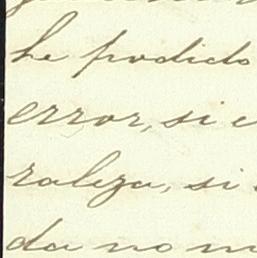 he podido
error, si e
raleza, si
da no m